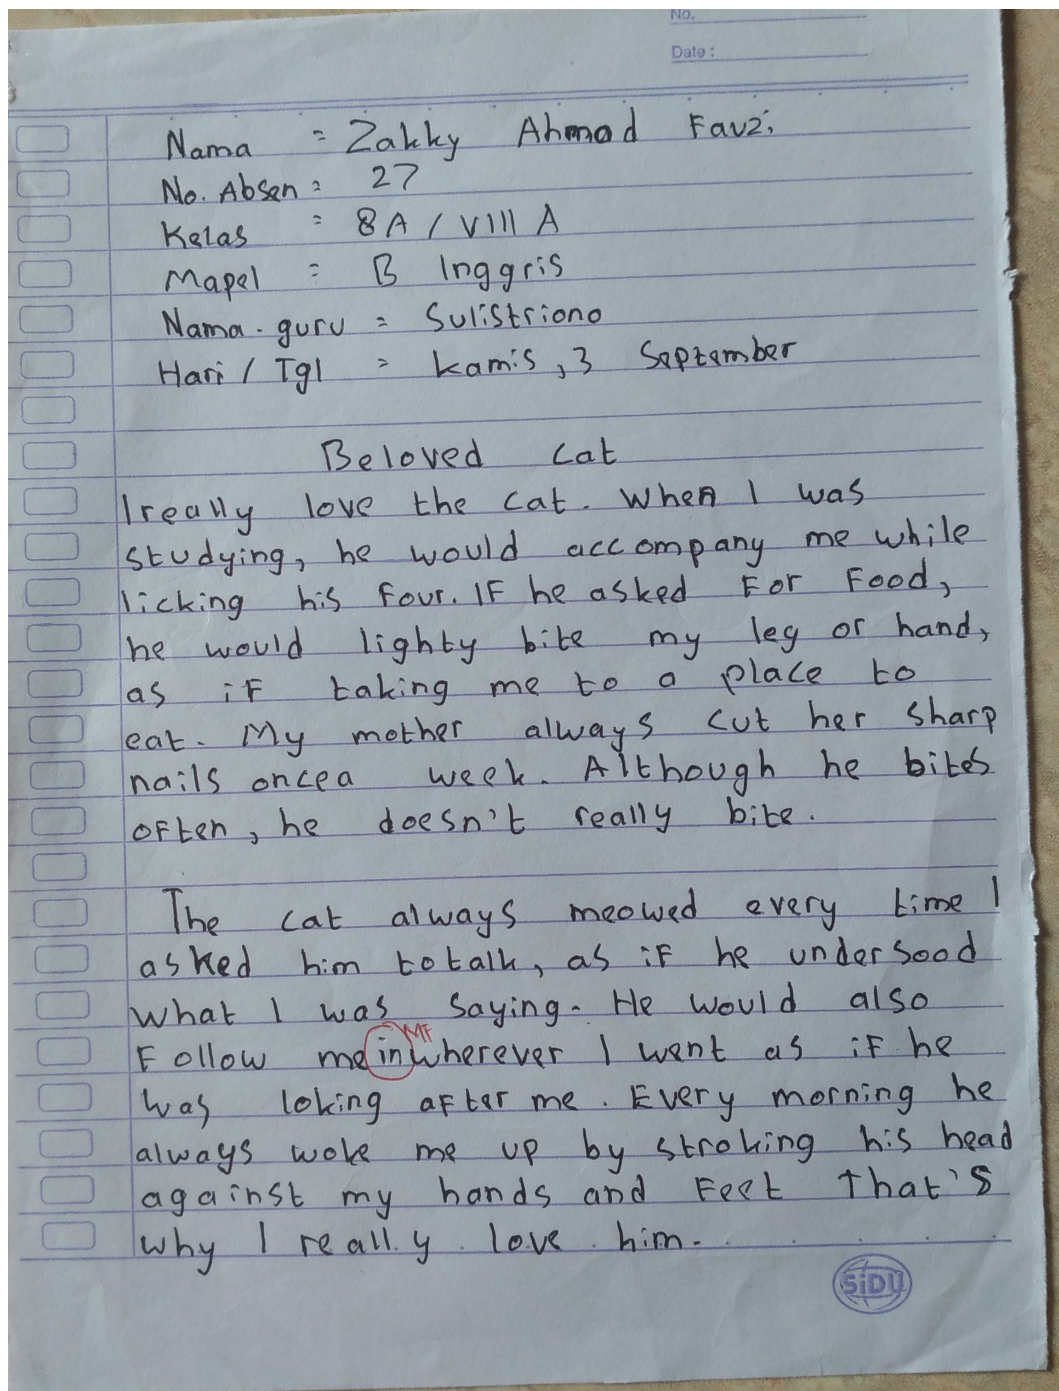 No.
Date :
Nama = Zakky Ahmad Fauzi
No. Absen = 27
Kelas = 8A / VIII A
Mapel = B Inggris
Nama guru = Sulistriono
Hari / Tgl = kamis, 3 September
Beloved cat
I really love the cat. When I was
studying, he would accompany me while
licking his four. If he asked For Food,
he would lighty bite my leg or hand,
as if taking me to a place to
eat. My mother always cut her sharp
nails oncea week. Although he bites
often, he doesn't really bite.
The cat always meowed every time I
asked him to talk, as if he undersood
what I was saying. He would also
Follow me in wherever I went as if he
MF
was loking after me. Every morning he
always woke me up by stroking his head
against my hands and Feet That's
why I really love him.
SiDU